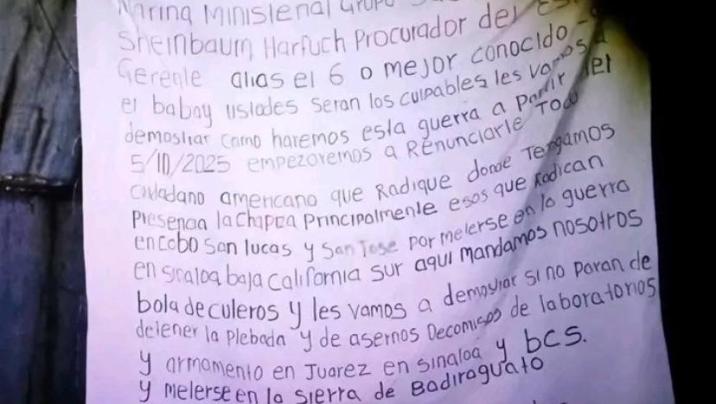 Marina Ministerial Grupo
Sheinbaum, Harfuch Procurador del
Gerente alias el 6 o mejor conocido
el babay ustades seran los culpables les vamos a
demostrar como haremos esta guerra a Partir del
5/10/2025 empezoremos a Renunciarle Todo
Ciudadano americano que Radique donde Tengamos
Presencia la Chapiza Principalmente esos que Radican
en Cobo San lucas y San Jose por meterse en la guerra
en sinaloa baja California sur aqui mandamos nosotros
bola de culeros y les vamos a demostrar si no paran de
detener la Plebada y de asernos Decomisos de laboratorios
y armamento en Juarez en sinaloa y bCS.
y meterse en la sierra de Badiraguato